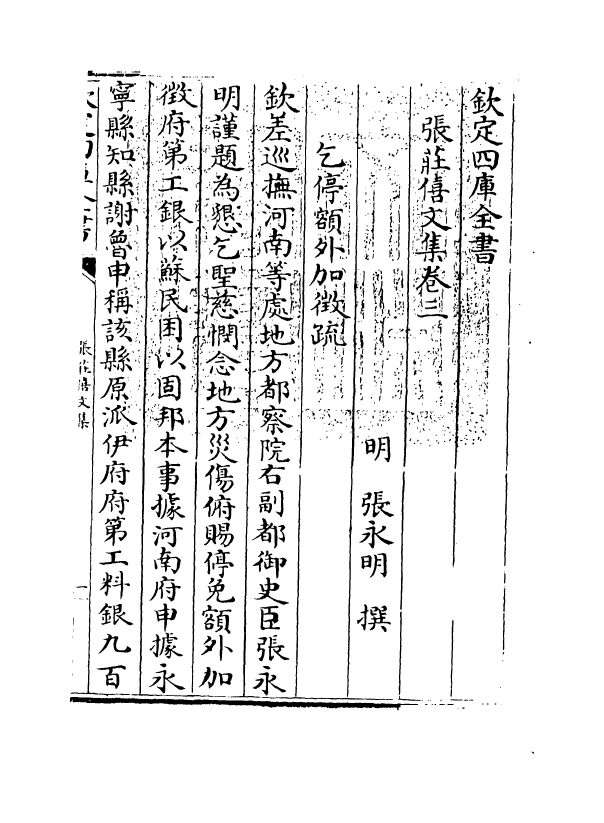 欽定四庫全書
張莊僖文集卷三
明 張永明 撰
乞停額外加徵疏
欽差巡撫河南等處地方都察院右副都御史臣張永
明謹題為懇乞聖慈憫念地方災傷俯賜停免額外加
徵府第工銀以蘇民困以固邦本事據河南府申據永
寧縣知縣謝魯申稱該縣原派伊府府第工料銀九百
張莊僖文集
一